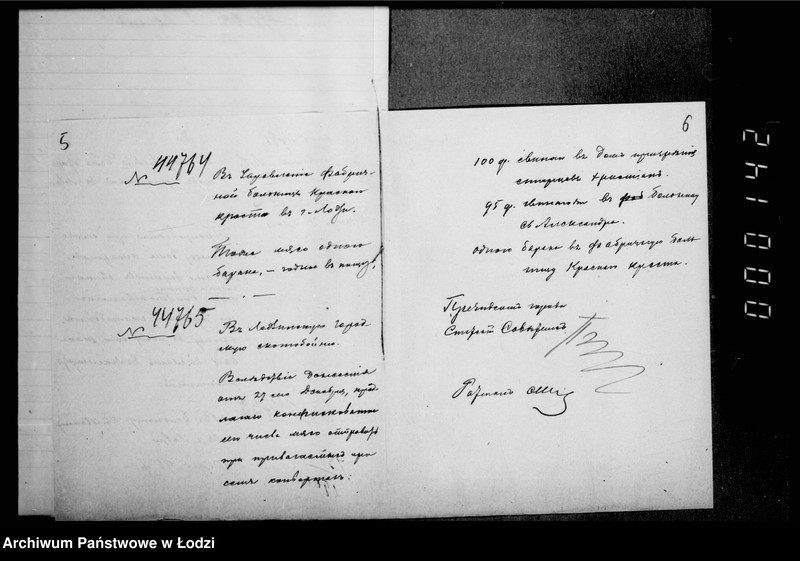 5
№ 44764
Въ Управленіе фабрич-
ной больницы Краснаго
креста въ г. Лодзи.
Тоже мясо одного
барана, – годное въ пищу,
№ 44765
Въ Лодзинскую город-
скую скотобойню.
Вслѣдствіе донесенія
отъ 27 сего Декабря, пред-
лагаю конфискованное
мясо отправить
при прилагаемыхъ при
семъ конвертахъ:
6
100 ф. свинины въ Домъ призрѣнія
старцевъ христіанъ.
95 ф. свинины въ больницу
Св. Александра.
одного барана въ фабричную боль-
ницу Краснаго креста.
Президентъ города
Статскій Совѣтникъ
000142
Archiwum Państwowe w Łodzi